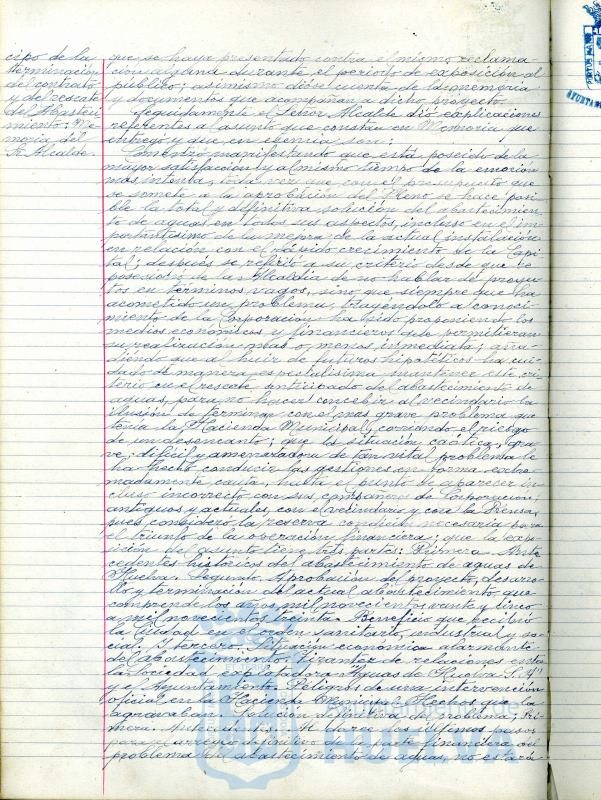 cipo de la
terminación
del contrato
y del rescate
del Abasteci-
miento; Me-
moria del
Sr. Alcalde.
que se haya presentado contra el mismo reclama-
ción alguna durante el período de exposición al
público; asimismo dióse cuenta de la memoria
y documentos que acompañan a dicho proyecto.
Seguidamente el Señor Alcalde dió explicaciones
referentes al asunto que constan en Memoria que
entregó y que en esencia son:
Comenzó manifestando que está poseido de la
mayor satisfacción y al mismo tiempo de la emoción
mas intensa, toda vez que con el presupuesto que
se somete a la aprobación del Pleno se hace posi-
ble la total y definitiva solución del abastecimien-
to de aguas en todos sus aspectos, incluso en el im-
portantísimo de la mejora de la actual instalación
en relación con el debido crecimiento de la Capi-
tal; después se refirió a su criterio desde que to
posesión de la Alcaldía de no hablar de proyec-
tos en términos vagos, sino que siempre que ha
acometido un problema, trayéndolo a conoci-
miento de la Corporación ha sido proponiendo los
medios económicos y financieros que permitieran
su realización mas o menos inmediata; aña-
diendo que al huir de futuros hipotéticos ha cui-
dado de manera especialísima mantener este cri-
terio en el rescate anticipado del abastecimiento de
aguas, para no hacer concebir al vecindario la
ilusión de terminar con el mas grave problema que
tenía la Hacienda Municipal, corriendo el riesgo
de un desencanto; que la situación caótica, gra-
ve, difícil y amenazadora de tan vital problema le
ha hecho conducir las gestiones en forma extre-
madamente cauta, hasta el punto de aparecer in-
cluso incorrecto con sus compañeros de Corporación,
antiguos y actuales, con el vecindario y con la Prensa,
pues consideró la reserva condición necesaria para
el triunfo de la operación financiera; que la expo-
sición del asunto tiene tres partes: Primera. Ante-
cedentes históricos del abastecimiento de aguas de
Huelva. Segundo. Aprobación del proyecto, desarro-
llo y terminación del actual abastecimiento que
comprende los años mil novecientos veinte y cinco
a mil novecientos treinta. Beneficio que recibió
la Ciudad en el orden sanitario, industrial y so-
cial. Y tercero. Situación económica alarmante
del abastecimiento. Tirantez de relaciones entre
la Sociedad explotadora "Aguas de Huelva S. A."
y el Ayuntamiento. Peligros de una intervención
oficial en la Hacienda Municipal. Hechos que la
agravaban. Solución definitiva del problema; Pri-
mera. Antes de dar los últimos pasos
para el arreglo definitivo de la parte financiera del
problema del abastecimiento de aguas, no estará
Ayuntamiento de
HUELVA